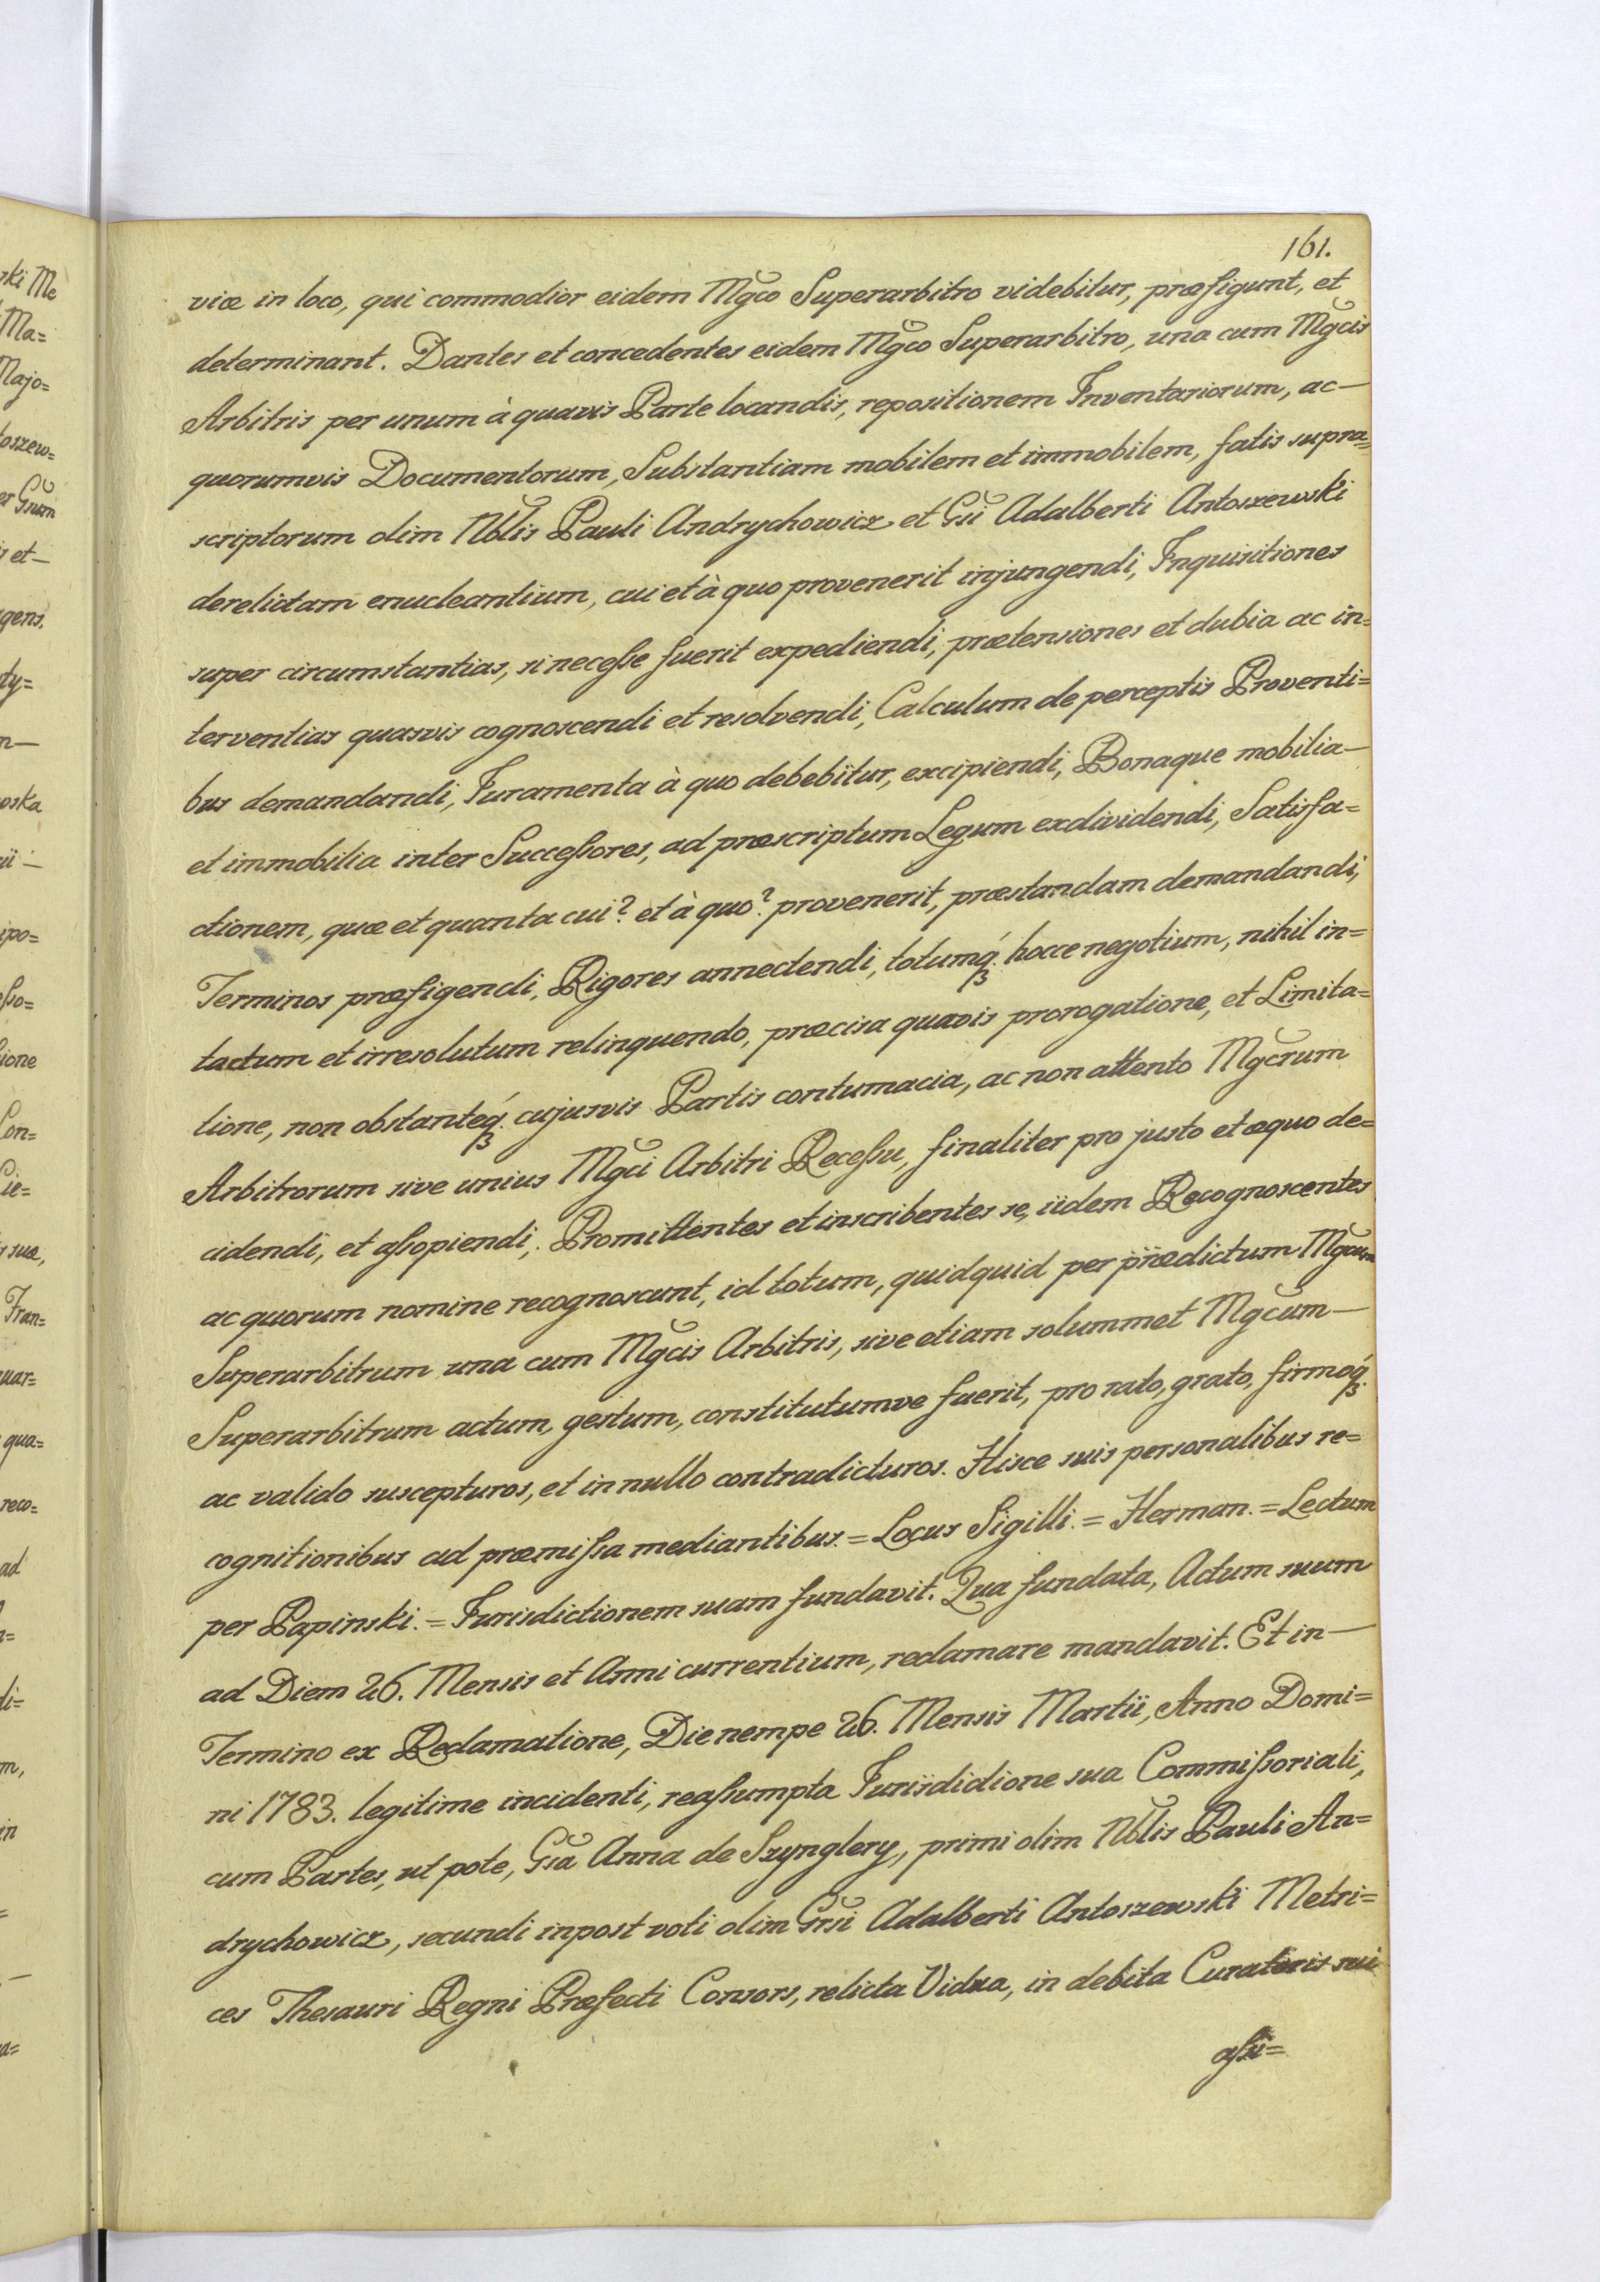 161.
viæ in loco, qui commodior eidem Mgco Superarbitro videbitur, præfigunt, et
determinant. Dantes et concedentes eidem Mgco Superarbitro, una cum Mgcis
Arbitris per unum à quavis Parte locandis, repositionem Inventariorum, ac—
quorumvis Documentorum, Substantiam mobilem et immobilem, fatis supra=
scriptorum olim Nblis Pauli Andrychowicz et Gsi Adalberti Antoszewski
derelictam enucleantium, cui et à quo provenerit injungendi, Inquisitiones
super circumstantias, si necesse fuerit expediendi, prætensiones et dubia ac in=
terventias quasvis cognoscendi et resolvendi, Calculum de perceptis Proventi=
bus demandandi, Iuramenta à quo debebitur, excipiendi, Bonaque mobilia—
et immobilia inter Successores, ad præscriptum Legum exdividendi, Satisfa=
ctionem, quæ et quanta cui? et à quo? provenerit, præstandam demandandi,
Terminos præfigendi, Rigores annectendi, totumq́ꝫ hocce negotium, nihil in=
tactum et irresolutum relinquendo, præcisa quavis prorogatione, et Limita=
tione, non obstanteq́ꝫ cujusvis Partis contumacia, ac non attento Mgcrum
Arbitrorum sive unius Mgci Arbitri Recessu, finaliter pro justo et æquo de=
cidendi, et assopiendi; Promittentes et inscribentes se, iidem Recognoscentes
ac quorum nomine recognoscunt, id totum, quidquid per prædictum Mgcum
Superarbitrum una cum Mgcis Arbitris, sive etiam solummet Mgcum—
Superarbitrum actum, gestum, constitutumve fuerit, pro rato, grato, firmoq́ꝫ
ac valido suscepturos, et in nullo contradicturos. Hisce suis personalibus re=
cognitionibus ad præmissa mediantibus.= Locus Sigilli.= Herman.= Lectum
per Papinski.= Iurisdictionem suam fundavit. Qua fundata, Actum suum
ad Diem 26. Mensis et Anni currentium, reclamare mandavit. Et in—
Termino ex Reclamatione, Die nempe 26. Mensis Martii, Anno Domi=
ni 1783. legitime incidenti, reassumpta Iurisdictione sua Commissoriali,
cum Partes, ut pote, Gsa Anna de Szynglery, primi olim Nblis Pauli An=
drychowicz, secundi inpost voti olim Grsi Adalberti Antoszewski Metri=
ces Thesauri Regni Præfecti Consors, relicta Vidua, in debita Curatoris sui
assi=